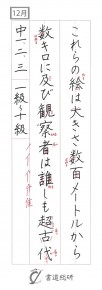 12月
これらの絵は大きさ数百メートルから
数キロに及び観察者は誰しも超古代
中一、二、三 一級〜十級
書道総研